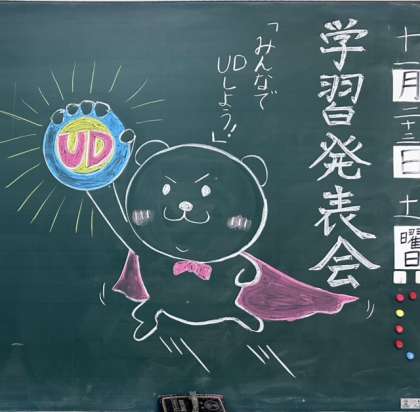 十一月二十三日
土曜日
学習発表会
「みんなで
UDしよう!!」
UD